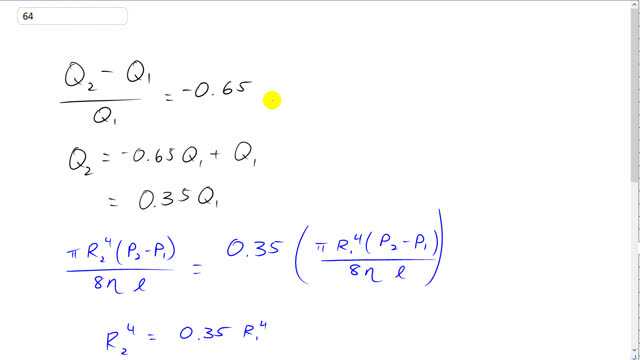 64
(Q₂ − Q₁)/Q₁ = −0.65
Q₂ = −0.65 Q₁ + Q₁
= 0.35 Q₁
πR₂⁴(P₂−P₁)/8η l = 0.35 (πR₁⁴(P₂−P₁)/8η l)
R₂⁴ = 0.35 R₁⁴